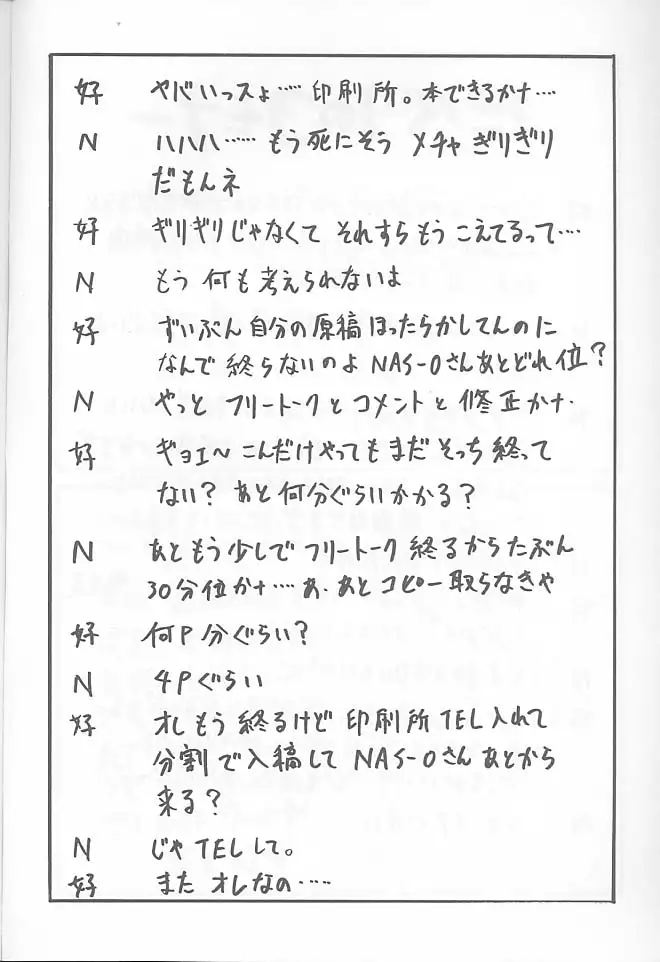 好 ヤバいっスょ……印刷所。本できるかナ…
N ハハハ……もう死にそう メチャ ぎりぎり
だもんネ
好 ギリギリじゃなくて それすら もう こえてるって…
N もう 何も考えられないよ
好 ずいぶん自分の原稿ほったらかしてんのに
なんで 終らないのよ NAS-Oさんあとどれ位？
N やっと フリートークと コメントと 修正かナ.
好 ギョエ〜 こんだけやっても まだ そっち 終って
ない？ あと何分ぐらいかかる？
N あともう少しで フリートーク 終るからたぶん
30分位かナ…. あ. あと コピー取らなきゃ
好 何P分ぐらい？
N 4Pぐらい
好 オレもう終るけど 印刷所 TEL入れて
分割で入稿して NAS-Oさん あとから
来る？
N じゃ TELして。
好 また オレなの….